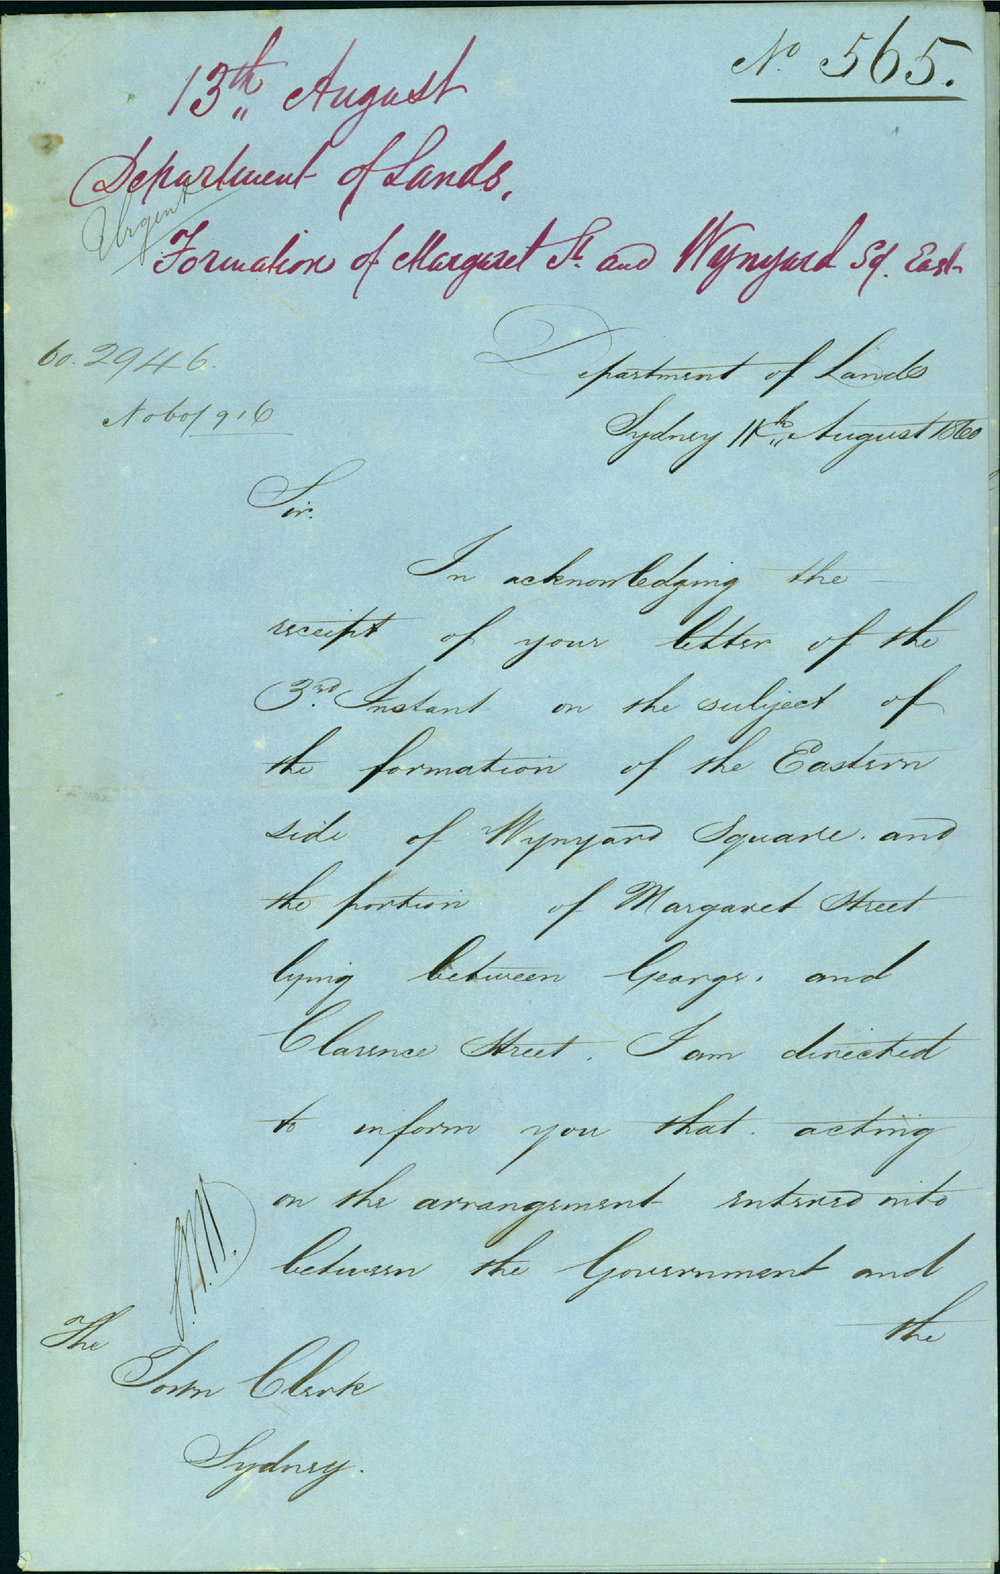 No 565.
13th August
Department of Lands,
Urgent
Formation of Margaret St. and Wynyard Sq. East
60.2946.
No 60/916
Department of Lands
Sydney 11th August 1860
Sir.
In acknowledging the
receipt of your letter of the
3rd. Instant on the subject of
the formation of the Eastern
side of Wynyard Square. and
the portion of Margaret Street
lying between George. and
Clarence Street. I am directed
to inform you that. acting
on the arrangement entered into
between the Government and
the
The
Town Clerk
Sydney.